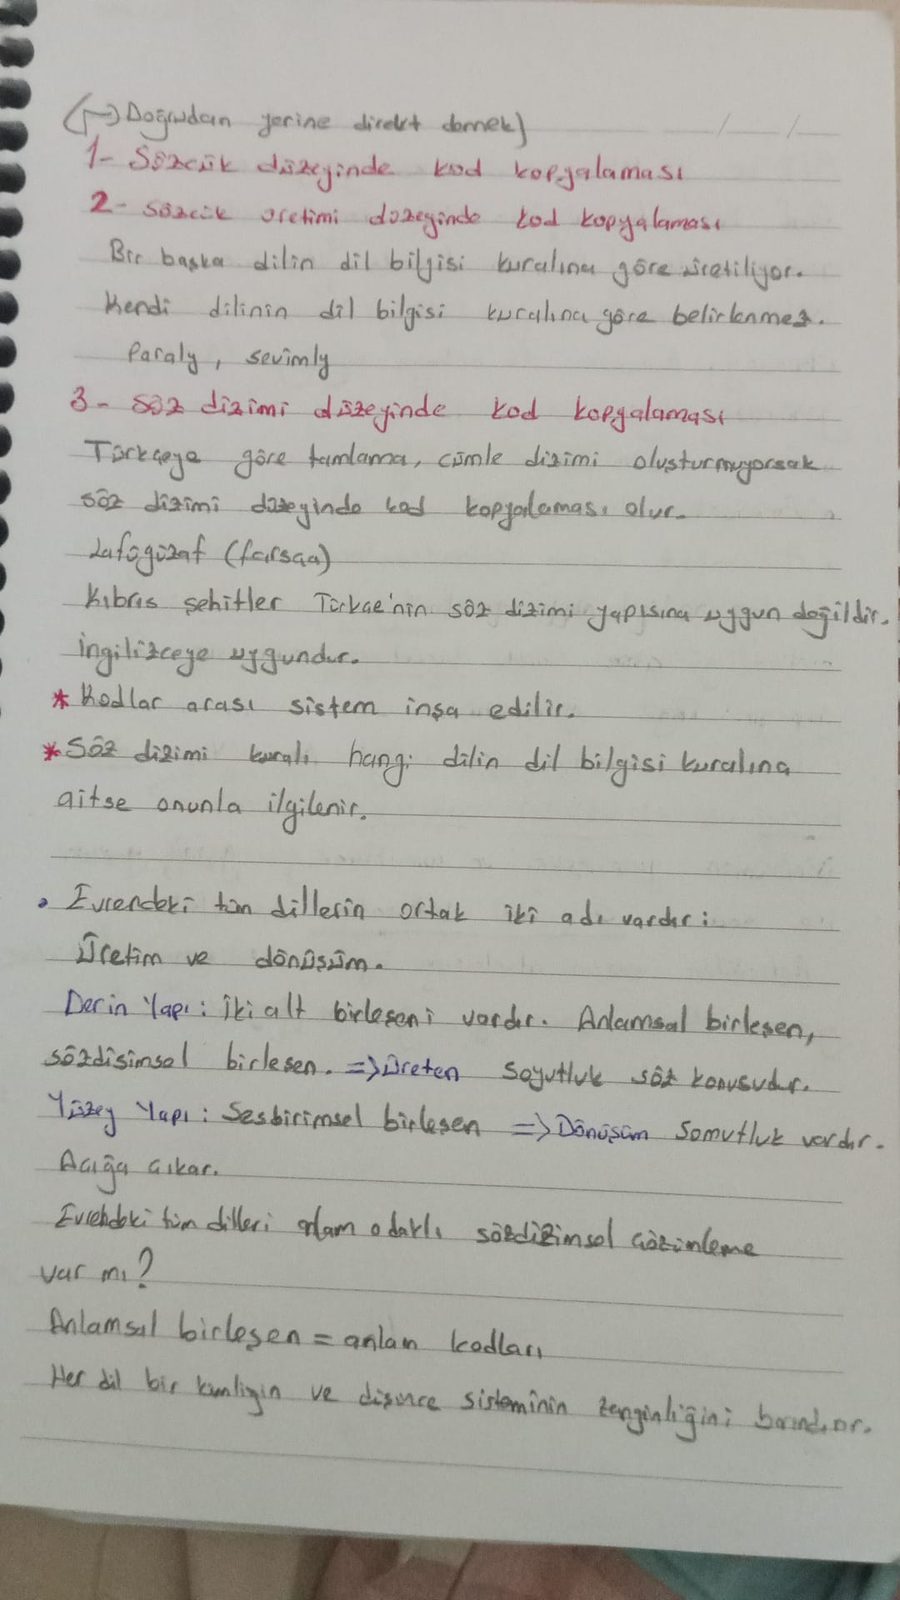 (→ Doğrudan yerine direkt demek)
1- Sözcük düzeyinde kod kopyalaması
2- Sözcük üretimi düzeyinde kod kopyalaması
Bir başka dilin dil bilgisi kuralına göre üretiliyor.
Kendi dilinin dil bilgisi kuralına göre belirlenmez.
Paraly, sevimly
3- Söz dizimi düzeyinde kod kopyalaması
Türkçeye göre tamlama, cümle dizimi oluşturmuyorsak
söz dizimi düzeyinde kod kopyalaması olur.
Lafügüzaf (farsça)
Kıbrıs şehitler Türkçe'nin söz dizimi yapısına uygun değildir.
İngilizceye uygundur.
* Kodlar arası sistem inşa edilir.
* Söz dizimi kuralı hangi dilin dil bilgisi kuralına
aitse onunla ilgilenir.
• Evrendeki tüm dillerin ortak iki adı vardır:
Üretim ve dönüşüm.
Derin Yapı: İki alt birleşeni vardır. Anlamsal birleşen,
sözdisimsel birleşen. => Üreten Soyutluk söz konusudur.
Yüzey Yapı: Sesbirimsel birleşen => Dönüşüm Somutluk vardır.
Açığa çıkar.
Evrendeki tüm dilleri anlam odaklı sözdizimsel çözümleme
var mı?
Anlamsal birleşen = anlam kodları
Her dil bir kimliğin ve düşünce sisteminin zenginliğini barındırır.